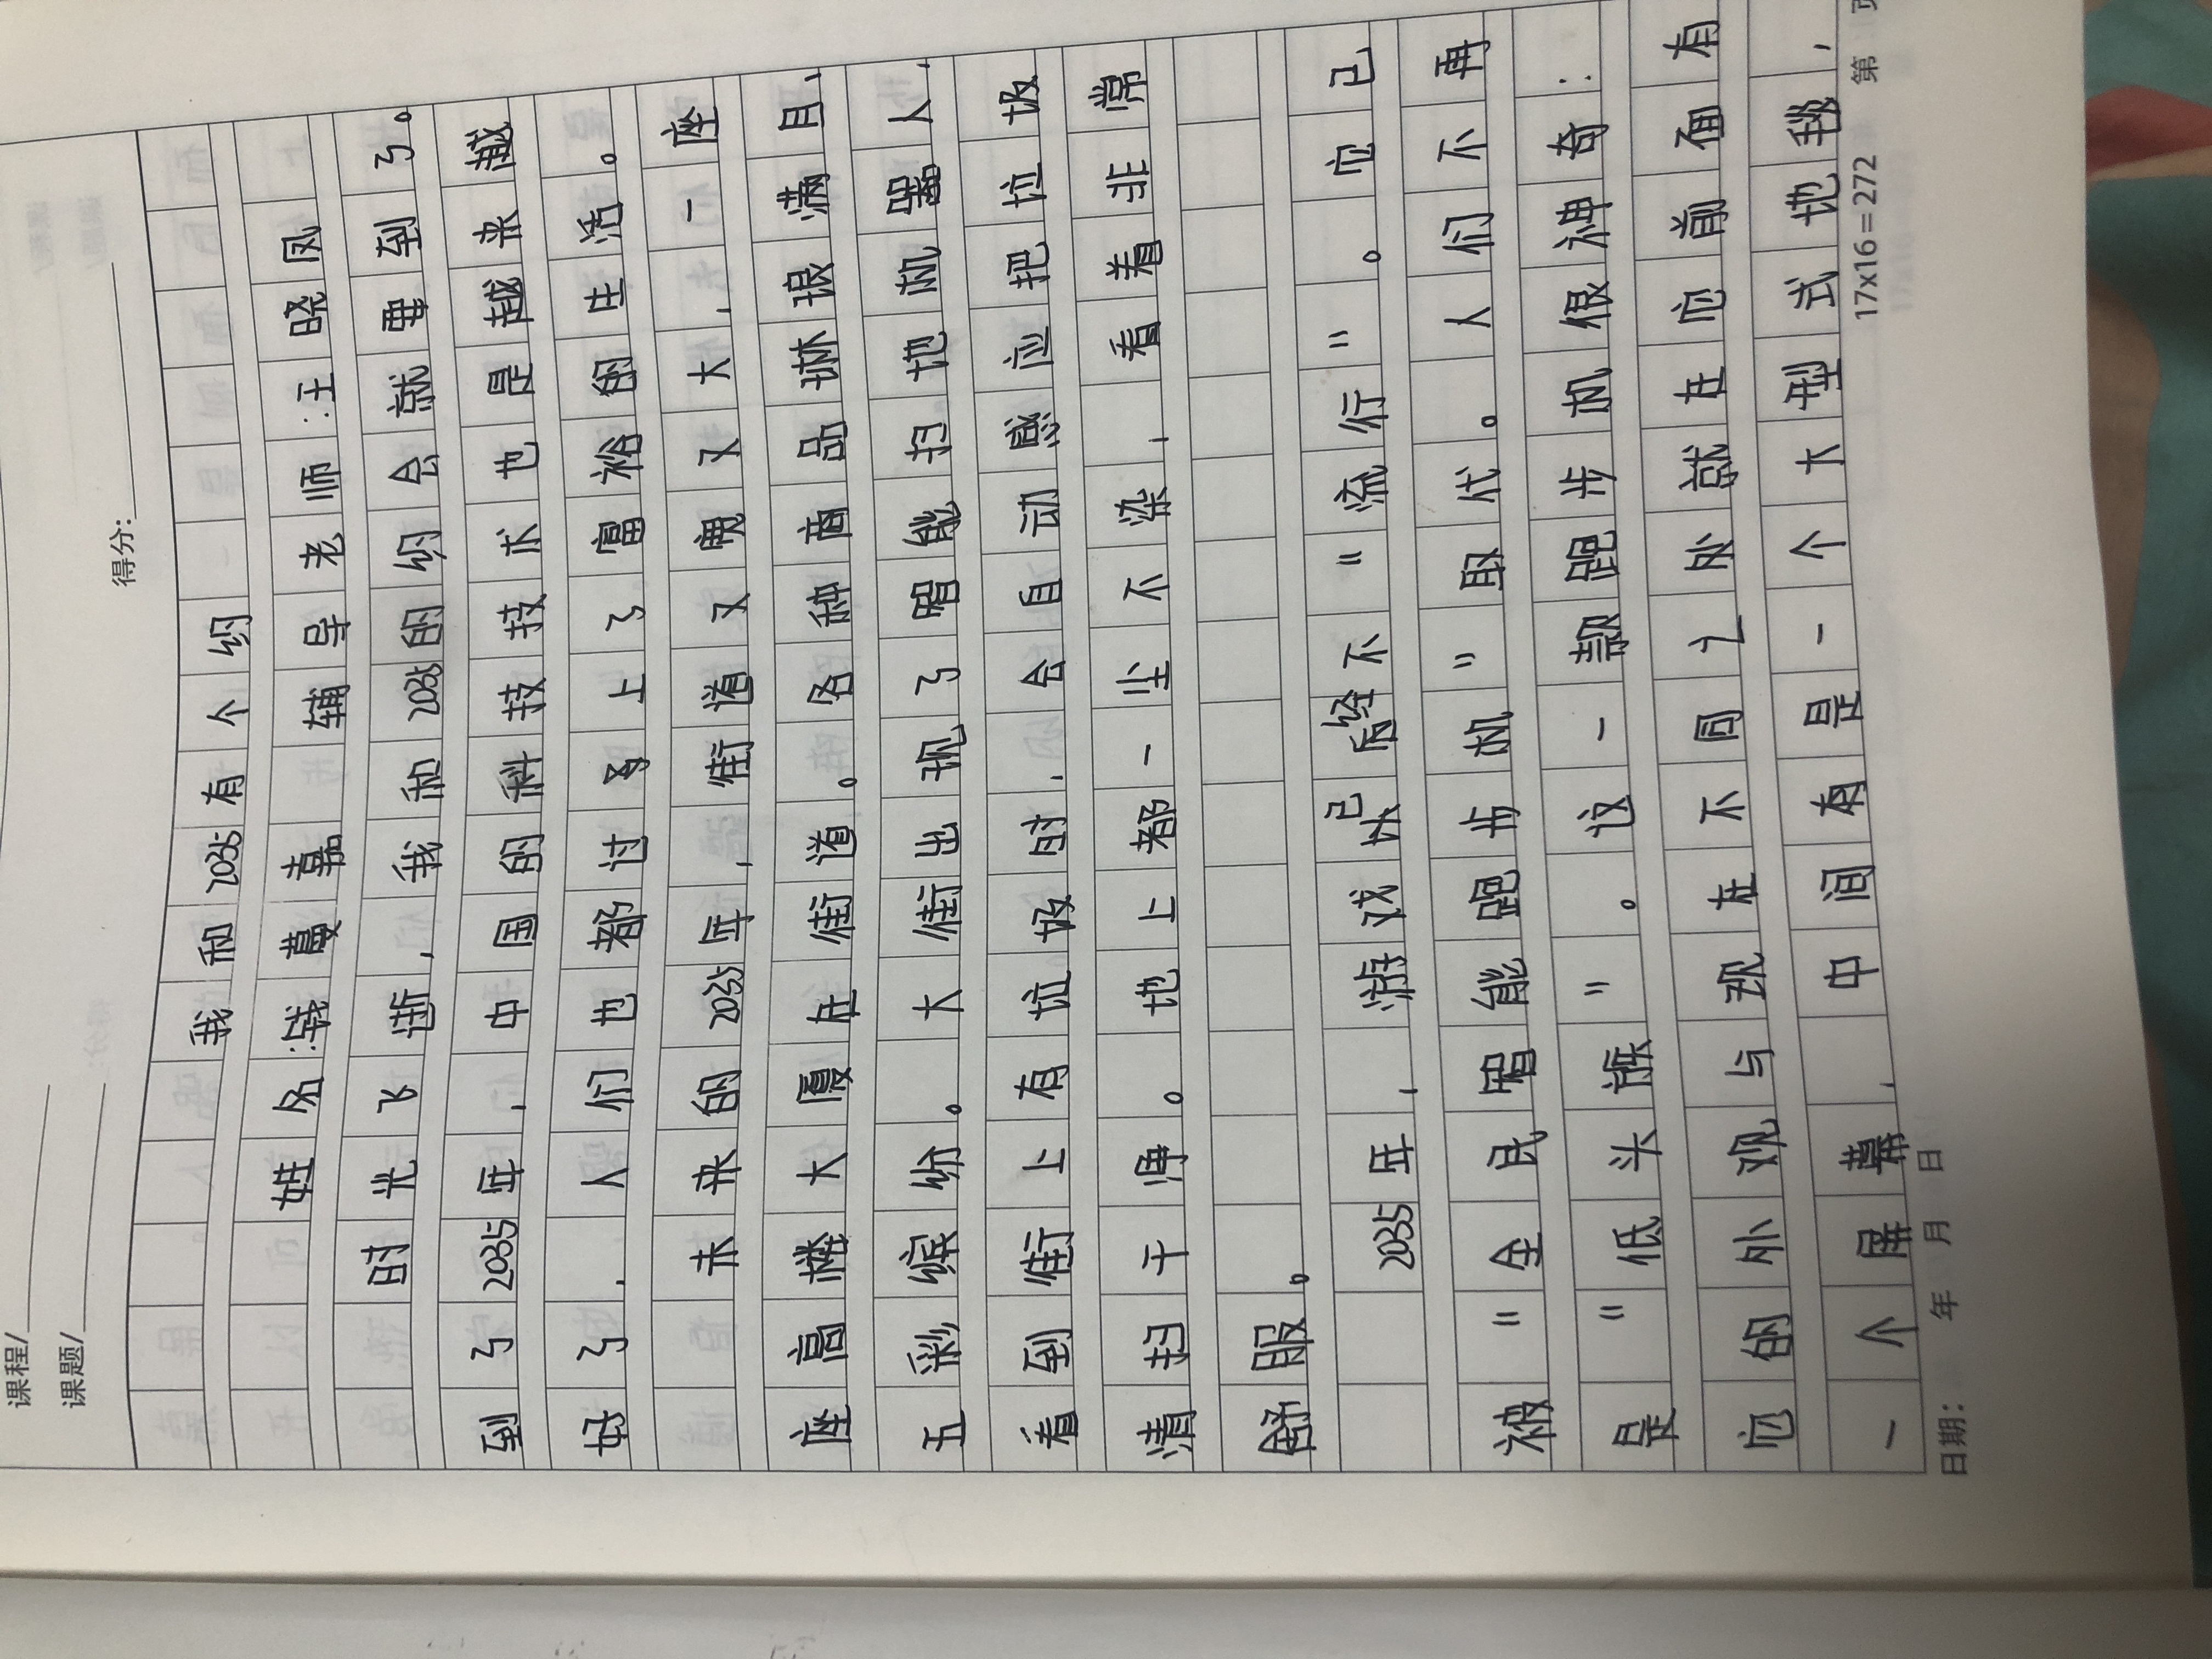 课程/
课题/
得分:
我和2035有个约
姓名:钱蔓嘉 辅导老师:王晓凤
时光飞逝,我和2035的约会就要到了。
到了2035年,中国的科技技术也是越来越
好了,人们也都过上了富裕的生活。
未来的2035年,街道又宽又大,一座
座高楼大厦在街道。各种商品琳琅满目、
五彩缤纷。大街出现了智能扫地机器人,
看到街上有垃圾时,会自动感应把垃圾
清扫干净。地上都一尘不染,看着非常
舒服。
2035年,游戏已经不“流行”。它已
被“全民智能跑步机”取代。人们不再
是“低头族”。这一款跑步机很神奇:
它的外观与现在不同之处就在它前面有
一个屏幕,中间有是一个大型式地毯,
日期: 年 月 日
17x16=272 第 页